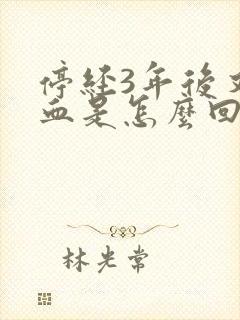 停經3年後
血是怎麼回
林光常